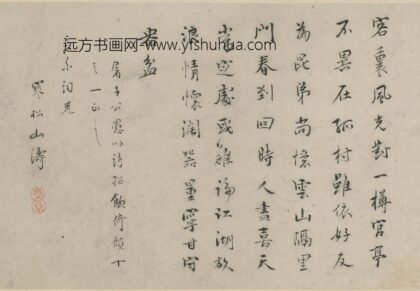 远方书画网：www.yfshuhua.com
客裏風光對一樽官亭
不異在孤村雖依好友
為昆弟尚憶雲山隔里
門春到回時人盡喜天
當應處或難論江湖放
浪情懷闊器量寧甘守
老盆
寒松山濤